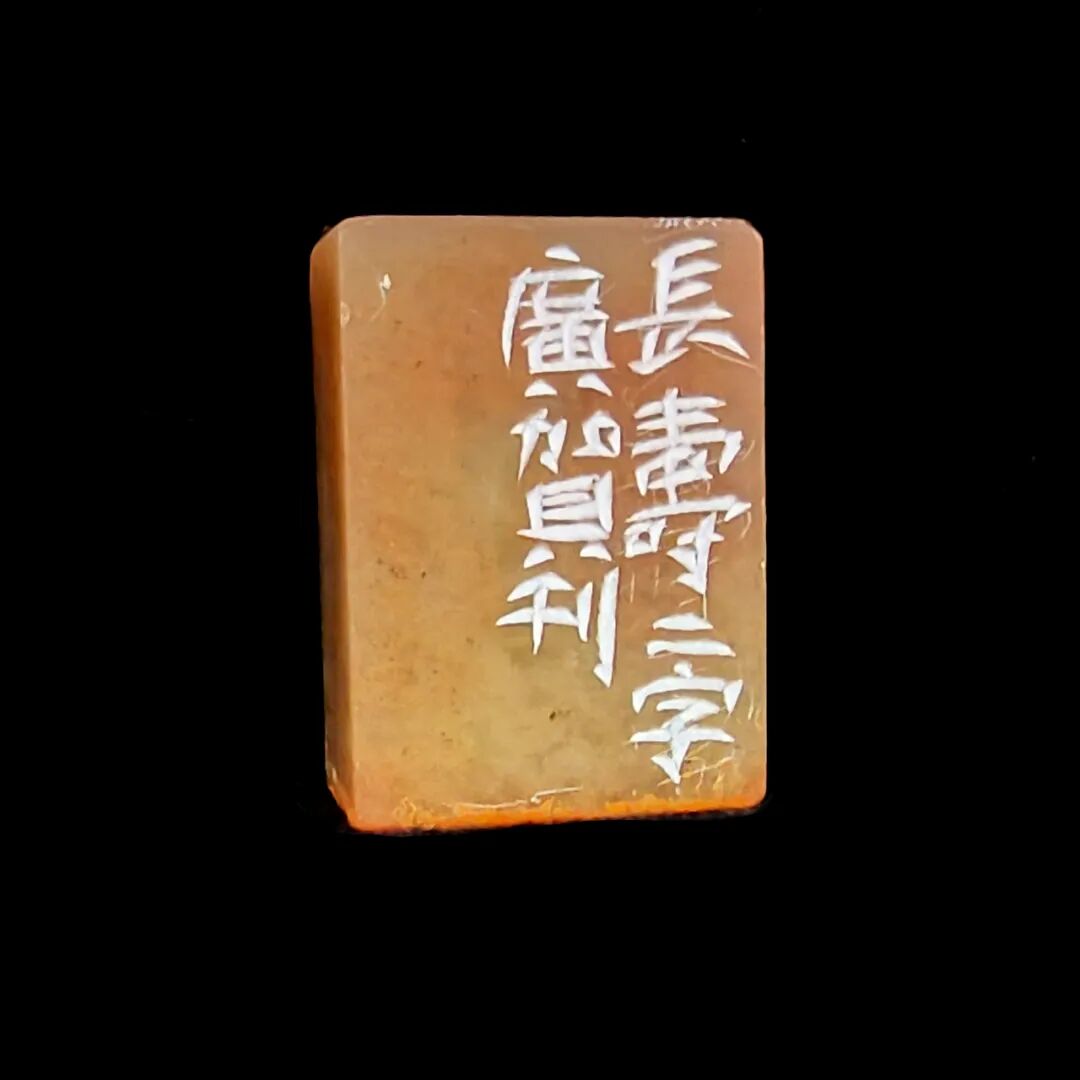 長壽二字
廣賀利